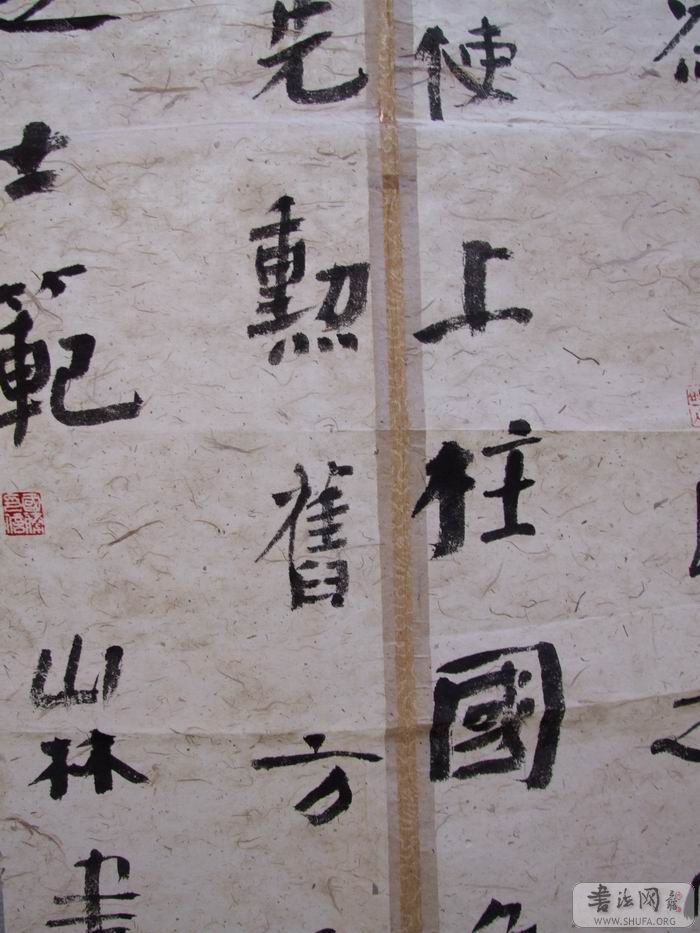 使上柱國
先勳舊方
士範
山林書
書法网
WWW.SHUFA.ORG